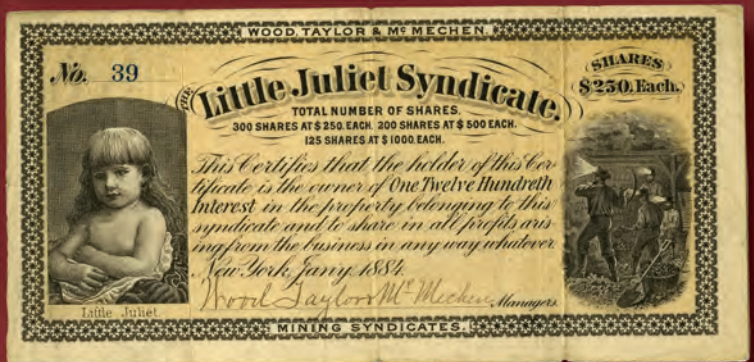 WOOD, TAYLOR & Mc MECHEN.
No. 39
THE Little Juliet Syndicate.
SHARES
$250. Each.
TOTAL NUMBER OF SHARES.
300 SHARES AT $250. EACH. 200 SHARES AT $500 EACH.
125 SHARES AT $1000. EACH.
This Certifies that the holder of this Cer-
tificate is the owner of One Twelve Hundreth
Interest in the property belonging to this
syndicate and to share in all profits aris
ing from the business in any way whatever.
New York, Jany. 1884.
Wood Taylor & Mc Mechen, Managers.
Little Juliet.
MINING SYNDICATES.